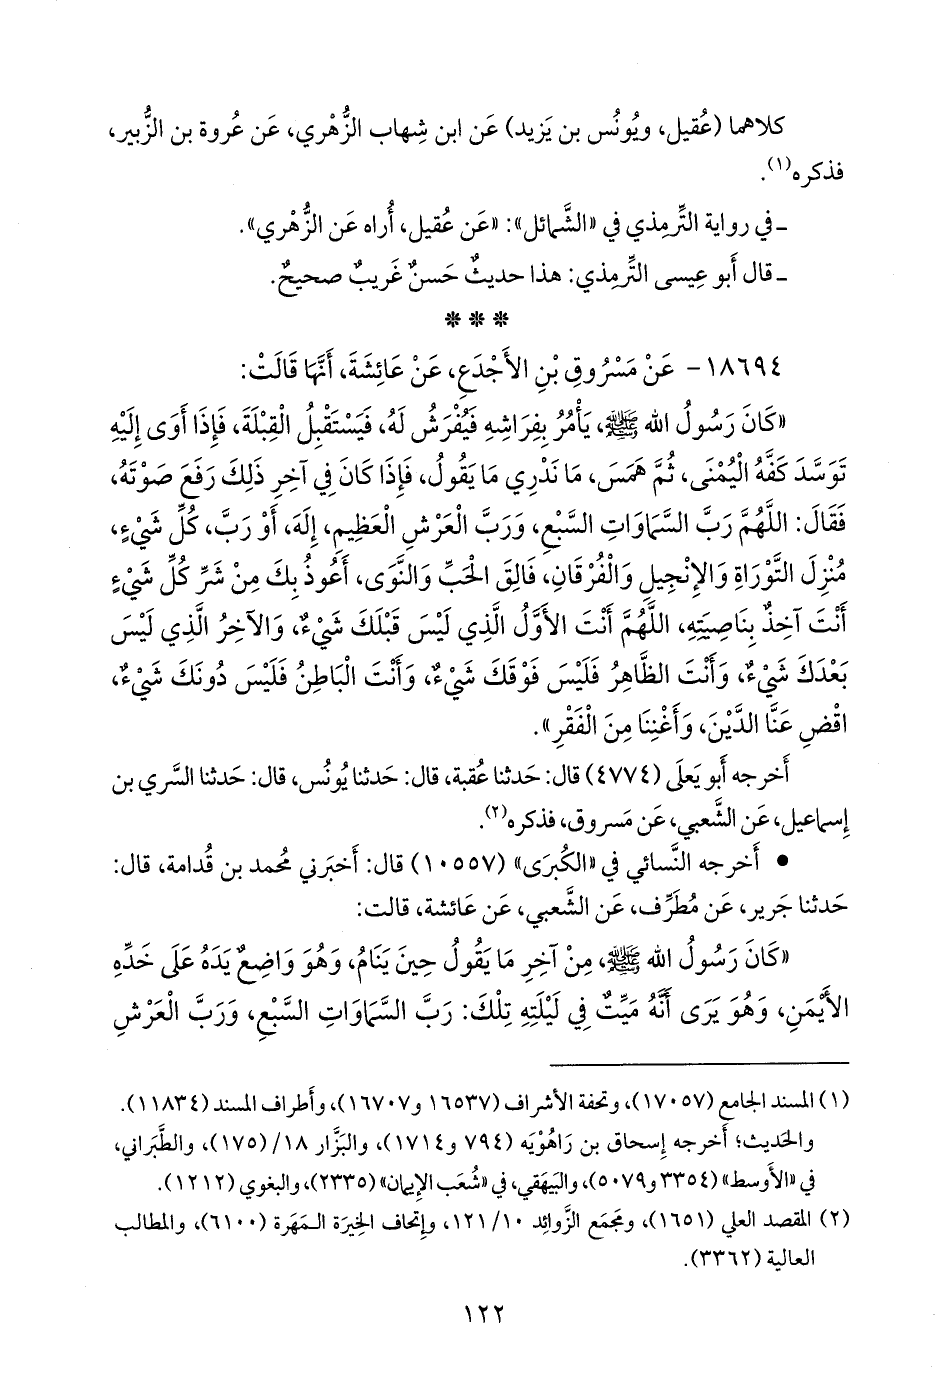 كلاهما (عُقيل، ويُونُس بن يَزيد) عَن ابن شِهاب الزُّهْري، عَن عُروة بن الزُّبير،
فذكره(١).
ـ في رواية التِّرمذي في «الشَّمائل»: «عَن عُقيل، أُراه عَن الزُّهْري».
ـ قال أَبو عِيسى التِّرمِذي: هذا حديثٌ حَسنٌ غَريبٌ صحيحٌ.
* * *
١٨٦٩٤- عَنْ مَسْرُوقِ بْنِ الأَجْدَعِ، عَنْ عَائِشَةَ، أَنَّهَا قَالَتْ:
«كَانَ رَسُولُ الله ﷺ، يَأْمُرُ بِفِرَاشِهِ فَيُفْرَشُ لَهُ، فَيَسْتَقْبِلُ الْقِبْلَةَ، فَإِذَا أَوَى إِلَيْهِ
تَوَسَّدَ كَفَّهُ الْيُمْنَى، ثُمَّ هَمَسَ، مَا نَدْرِي مَا يَقُولُ، فَإِذَا كَانَ فِي آخِرِ ذَلِكَ رَفَعَ صَوْتَهُ،
فَقَالَ: اللَّهُمَّ رَبَّ السَّمَاوَاتِ السَّبْعِ، وَرَبَّ الْعَرْشِ الْعَظِيمِ، إِلَهَ، أَوْ رَبَّ، كُلِّ شَيْءٍ،
مُنْزِلَ التَّوْرَاةِ وَالإِنْجِيلِ وَالْفُرْقَانِ، فَالِقَ الْحَبِّ وَالنَّوَى، أَعُوذُ بِكَ مِنْ شَرِّ كُلِّ شَيْءٍ
أَنْتَ آخِذٌ بِنَاصِيَتِهِ، اللَّهُمَّ أَنْتَ الأَوَّلُ الَّذِي لَيْسَ قَبْلَكَ شَيْءٌ، وَالآخِرُ الَّذِي لَيْسَ
بَعْدَكَ شَيْءٌ، وَأَنْتَ الظَّاهِرُ فَلَيْسَ فَوْقَكَ شَيْءٌ، وَأَنْتَ الْبَاطِنُ فَلَيْسَ دُونَكَ شَيْءٌ،
اقْضِ عَنَّا الدَّيْنَ، وَأَغْنِنَا مِنَ الْفَقْرِ».
أَخرجه أَبو يَعلَى (٤٧٧٤) قال: حَدثنا عُقبة، قال: حَدثنا يُونُس، قال: حَدثنا السَّري بن
إِسماعيل، عَن الشَّعبي، عَن مَسروق، فذكره(٢).
• أَخرجه النَّسائي في «الكُبرَى» (١٠٥٥٧) قال: أَخبَرني مُحمد بن قُدامة، قال:
حَدثنا جَرير، عَن مُطَرِّف، عَن الشَّعبي، عَن عَائشة، قالت:
«كَانَ رَسُولُ الله ﷺ، مِنْ آخِرِ مَا يَقُولُ حِينَ يَنَامُ، وَهُوَ وَاضِعٌ يَدَهُ عَلَى خَدِّهِ
الأَيْمَنِ، وَهُوَ يَرَى أَنَّهُ مَيِّتٌ فِي لَيْلَتِهِ تِلْكَ: رَبَّ السَّمَاوَاتِ السَّبْعِ، وَرَبَّ الْعَرْشِ
(١) المسند الجامع (١٧٠٥٧)، وتحفة الأشراف (١٦٥٣٧ و١٦٧٠٧)، وأَطراف المسند (١١٨٣٤).
والحَديث؛ أَخرجه إِسحاق بن رَاهُوْيَه (٧٩٤ و١٧١٤)، والبَزَّار ١٨/ (١٧٥)، والطَّبَراني،
في «الأَوسط» (٣٣٥٤ و٥٠٧٩)، والبَيهَقي، في «شُعَب الإِيمان» (٢٣٣٥)، والبغوي (١٢١٢).
(٢) المقصد العلي (١٦٥١)، ومَجمَع الزَّوائِد ١٠/ ١٢١، وإِتحاف الخِيرَة المَهَرة (٦١٠٠)، والمطالب
العالية (٣٣٦٢).
١٢٢